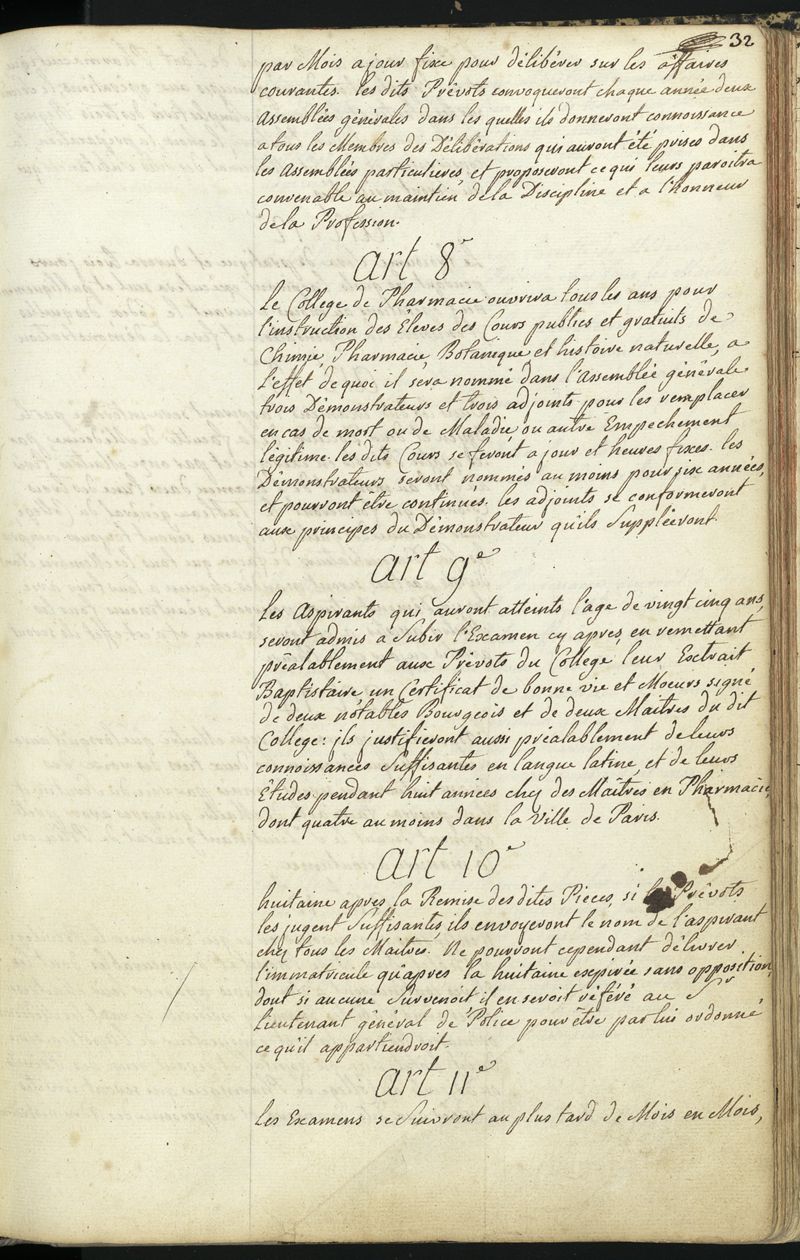 32
par Mois a jour fixe pour délibérer sur les affaires
courantes. les dits Prévots convoqueront chaque année deux
Assemblées générales dans les quelles ils donneront connoissance
a tous les Membres des Délibérations qui auront été prises dans
les Assemblées particulieres, et proposeront ce qui leurs paroitra
convenable au maintien de la Discipline et a l'honneur
de la Profession.
art 8e
le College de Pharmacie ouvrira tous les ans pour
l'instruction des Éleves des Cours publics et gratuits de
Chimie, Pharmacie, Botanique et histoire naturelle, a
l'effet de quoi il sera nommé dans l'assemblée générale
trois Démonstrateurs et trois adjoints pour les remplacer
en cas de mort ou de Maladie, ou autre Empechement
légitime. les dits Cours se feront a jour et heures fixes. les
Démonstrateurs seront nommés au moins pour six années,
et pourront être continués. les adjoints se conformeront
aux principes du Démonstrateur qu'ils Suppléeront.
art 9e
les Aspirants qui auront atteints l'age de vingt cinq ans,
seront admis a Subir l'Examen cy apres, en remettant
préalablement aux Prévots du College leur Extrait
Baptistaire, un Certificat de bonne vie et Moeurs signé
de deux notables Bourgeois et de deux Maitres du dit
College: ils justifieront aussi préalablement de leurs
connoissances Suffisantes en langue latine, et de leurs
Études pendant huit années chez des Maitres en Pharmacie,
dont quatre au moins dans la Ville de Paris.
art 10e
huitaine apres la Remise des dites Pieces, si les Prévots
les jugent Suffisantes, ils envoyeront le nom de l'aspirant
chez tous les Maitres. Ne pourront cependant délivrer
l'immatricule qu'apres la huitaine expirée sans opposition,
dont si aucune Survenoit il en seroit référé au Sr
Lieutenant général de Police pour être par lui ordonné
ce qu'il appartiendroit.
art 11e
les Examens se Suivront au plus tard de Mois en Mois,